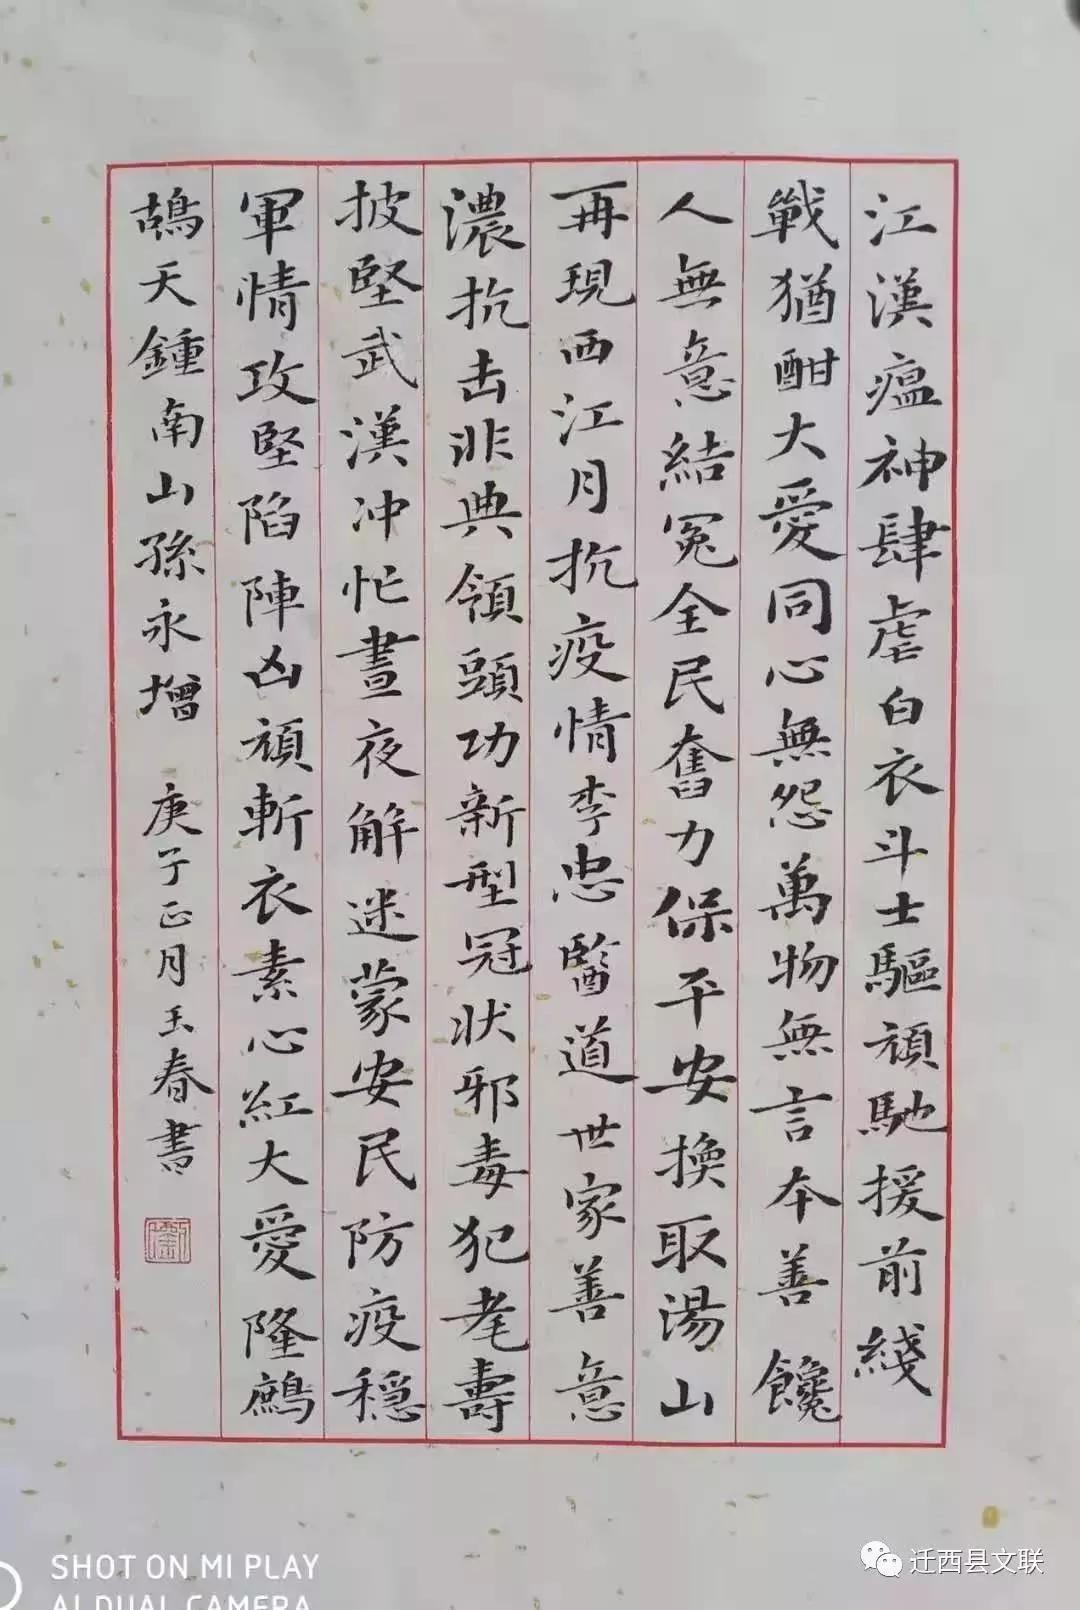 江漢瘟神肆虐白衣斗士驅頑馳援前綫
戰猶酣大愛同心無怨萬物無言本善饞
人無意結冤全民奮力保平安換取湯山
再現西江月抗疫情李忠醫道世家善意
濃抗击非典領頭功新型冠状邪毒犯耄壽
披堅武漢冲忙晝夜解迷蒙安民防疫穩
軍情攻堅陷陣凶頑斬衣素心紅大愛隆鷓
鴣天鍾南山孫永增 庚子正月玉春書
SHOT ON MI PLAY
AI DUAL CAMERA
迁西县文联